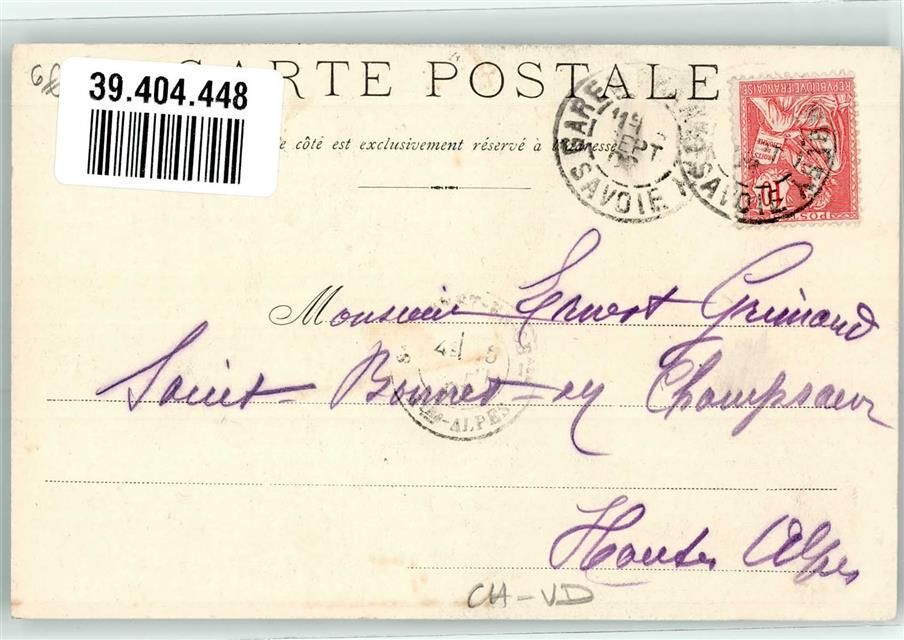 39.404.448
CARTE POSTALE
côté est exclusivement réservé à l'adresse
GARE
19 SEPT
SAVOIE
SAVOIE
REPUBLIQUE FRANÇAISE
10
POSTES
Monsieur Ernest Grimaud
Saint-Bonnet-en Champsaur
Hautes Alpes
Htes-ALPES
CH-VD